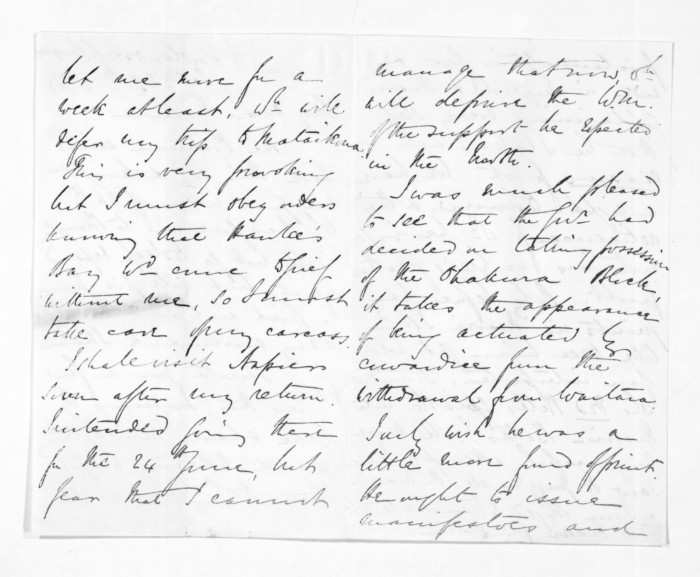 let me move for a
week at least, wh. will
defer my trip to Matakana.
This is very provoking
but I must obey orders
knowing that Hawke's
Bay wd. come to grief
without me, so I must
take care of my carcass.
I shall visit Napier
soon after my return.
I intended going there
for the 24th June, but
fear that I cannot
manage that now,
will deprive the W.M.
of the support he expected
in the North.
I was much pleased
to see that the Govt. had
decided on taking possession
of the Oakura Block,
it takes the appearance
of being actuated by
cowardice from the
withdrawal from Waitara.
I only wish he was a
little more fond of print.
He ought to issue
manifestoes and